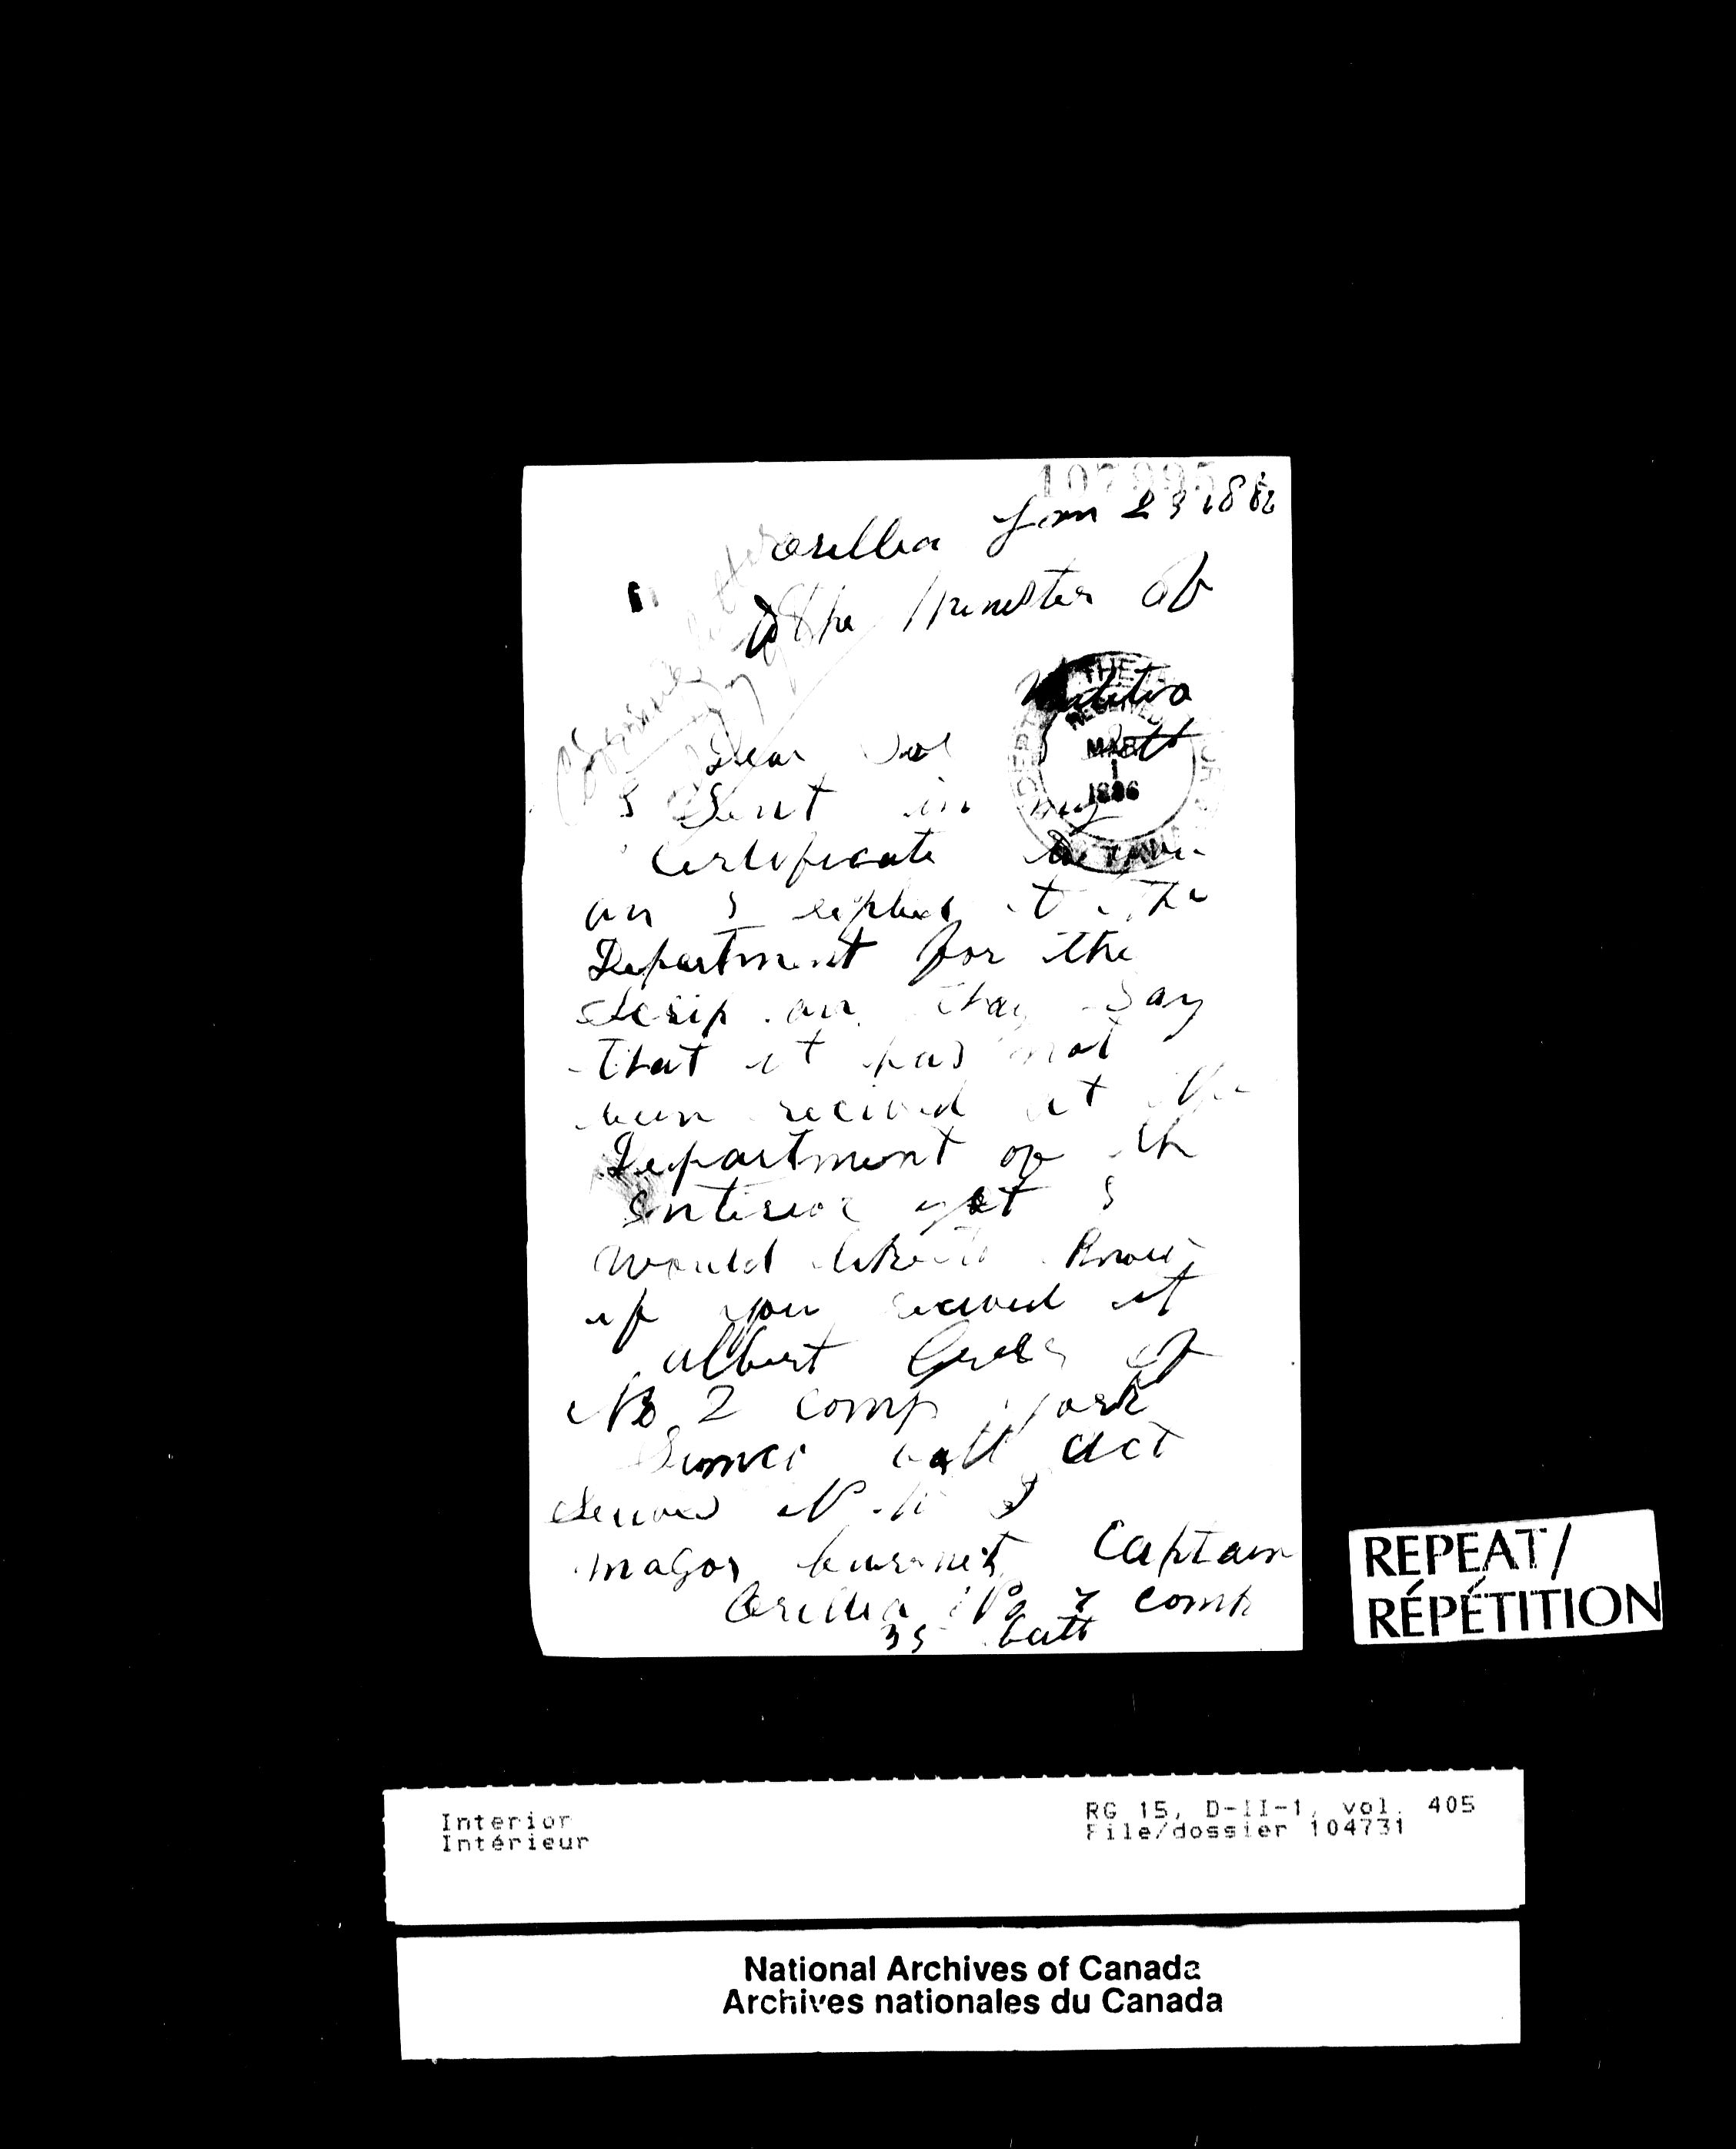 107995
Orillia Jan 23 1886
To the Minester Of
Malitia
Dear Sir I
I Sent in my
Certificate
an I replied t the
Department for the
Scrip an thay Say
that it has not
been recived at the
Department of th
Interior yet I
would like to know
if you recived it
Albert of
No 2 comp york
Simco batt Act
Servis N. W
Magor Captain
Orillia No 7 comp
35 batt
DEPT THE INTERIOR
RECEIVED
MAR
1
1886
OTTAWA
REPEAT/
RÉPÉTITION
Interior
Intérieur
RG 15, D-II-1, vol. 405
File/dossier 104731
National Archives of Canada
Archives nationales du Canada